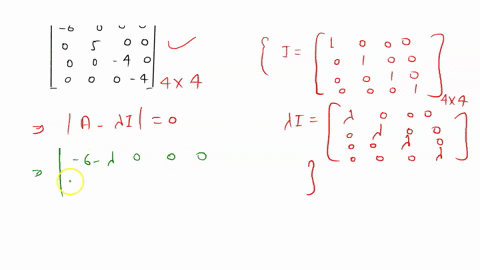 -6 0 0 0
0 5 0 0
0 0 -4 0
0 0 0 -4 4×4
⇒ |A - λI| = 0
⇒ | -6-λ 0 0 0
{ I = [ 1 0 0 0
0 1 0 0
0 0 1 0
0 0 0 1 ] 4×4
λI = [ λ 0 0 0
0 λ 0 0
0 0 λ 0
0 0 0 λ ]
}